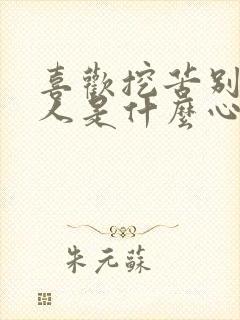 喜歡挖苦別
人是什麼心
朱元蘇